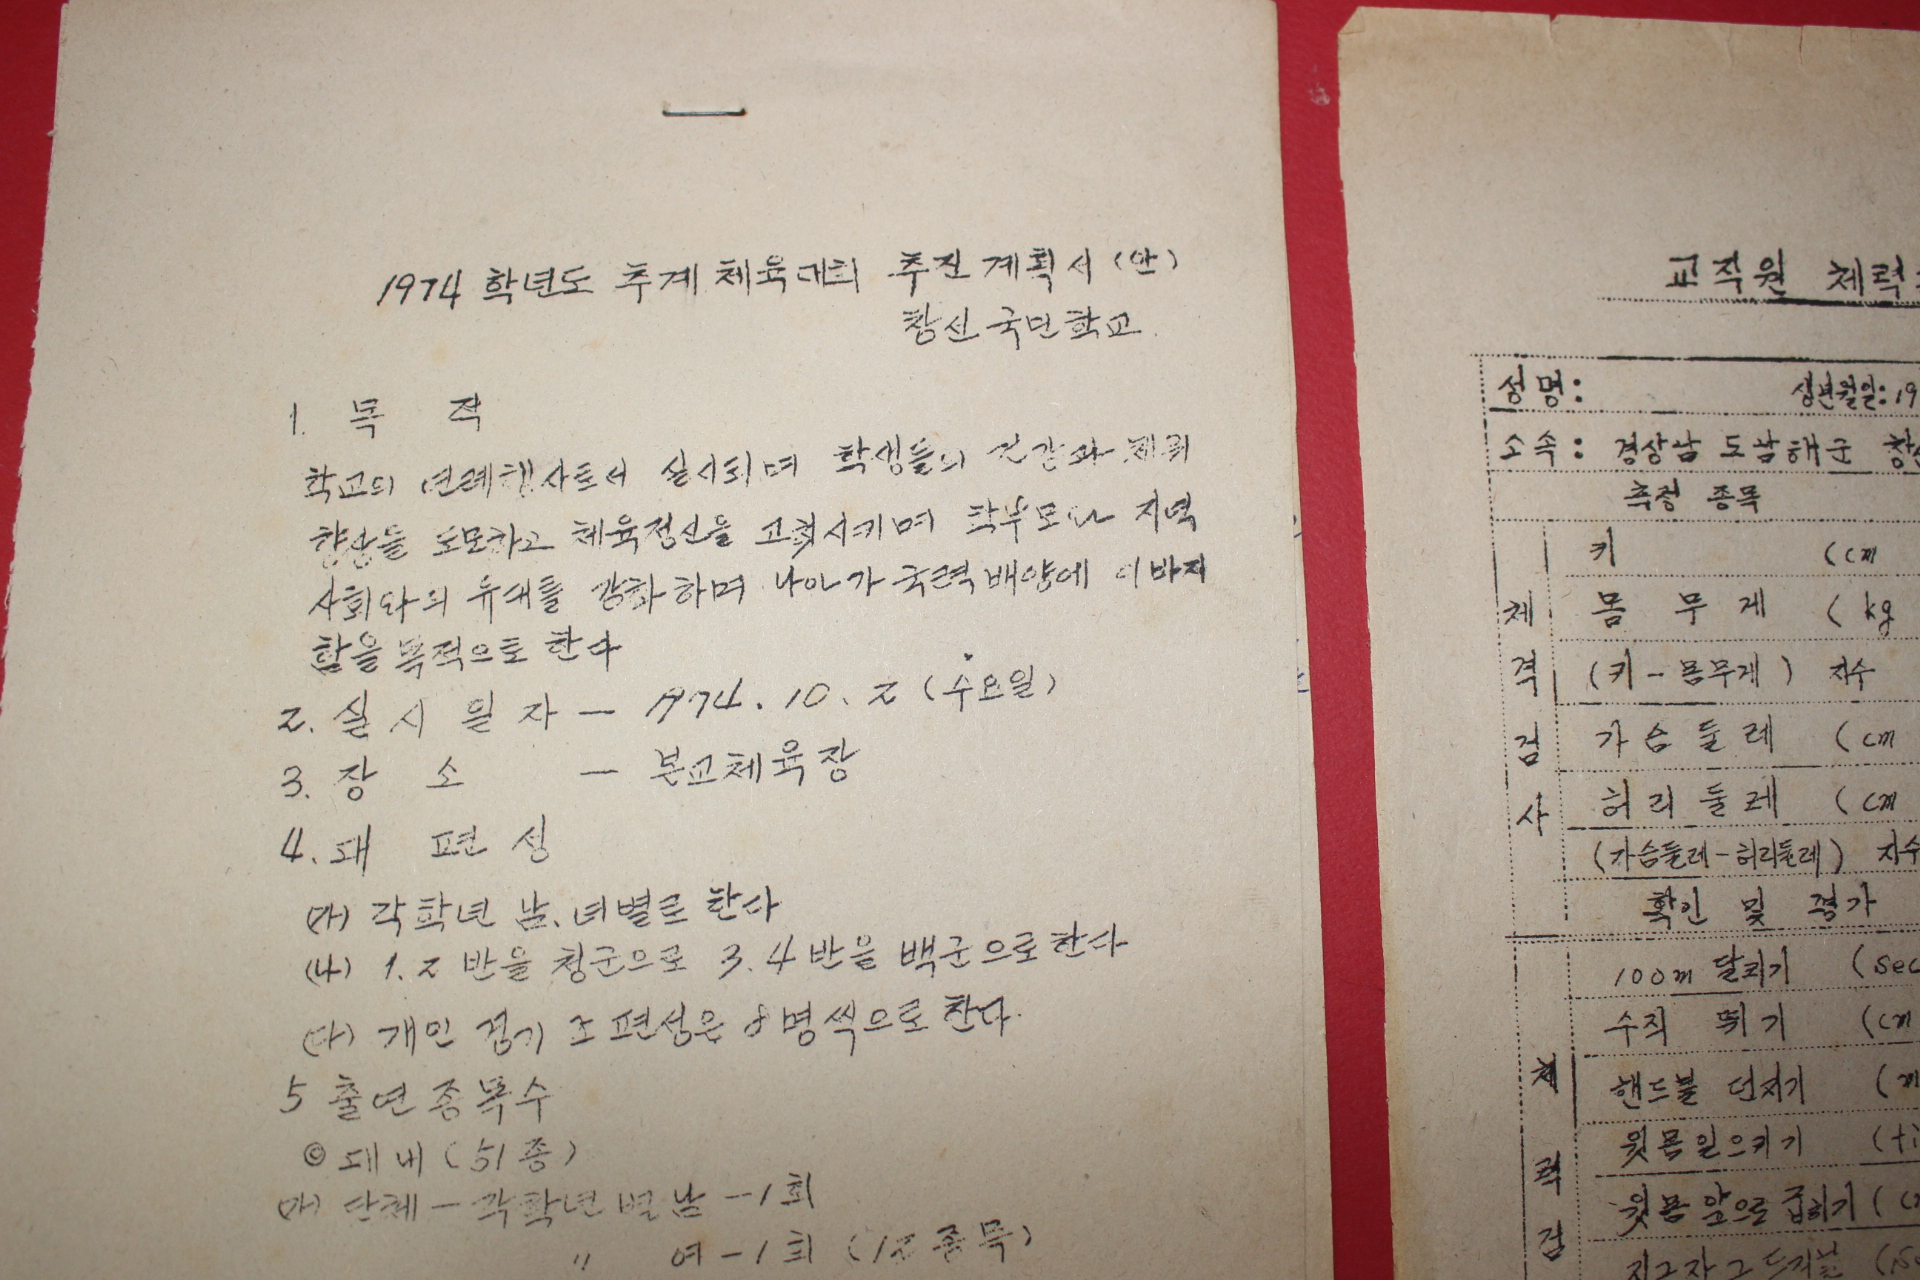 1974 학년도 추계 체육대회 추진계획서 (안)
창선국민학교.
1. 목 적
학교의 년례행사로서 실시되며 학생들의 건강과 체위
향상을 도모하고 체육정신을 고취시키며 학부모나 지역
사회와의 유대를 강화하며 나아가 국력배양에 이바지
함을 목적으로 한다
2. 실시일자 - 1974. 10. 2 (수요일)
3. 장 소 - 본교체육장
4. 대 편 성
(가) 각학년 남, 녀별로 한다
(나) 1. 2 반을 청군으로 3. 4 반을 백군으로 한다
(다) 개인 경기 조편성은 8명씩으로 한다.
5 출연종목수
◎ 대내 (51종)
(가) 단체 - 각학년별 남 - 1회
〃 여 - 1회 (12종목)
교직원 체력
성명: 생년월일: 19
소속: 경상남도 남해군 창선
측정 종목
체격검사
키 (cm
몸무게 (kg
(키-몸무게) 지수
가슴둘레 (cm
허리둘레 (cm
(가슴둘레-허리둘레) 지수
확인 및 평가
체력검
100m 달리기 (sec
수직 뛰기 (cm
핸드볼 던지기 (m
윗몸일으키기 (ti
윗몸 앞으로 굽히기 (cm
지그자그 드리블